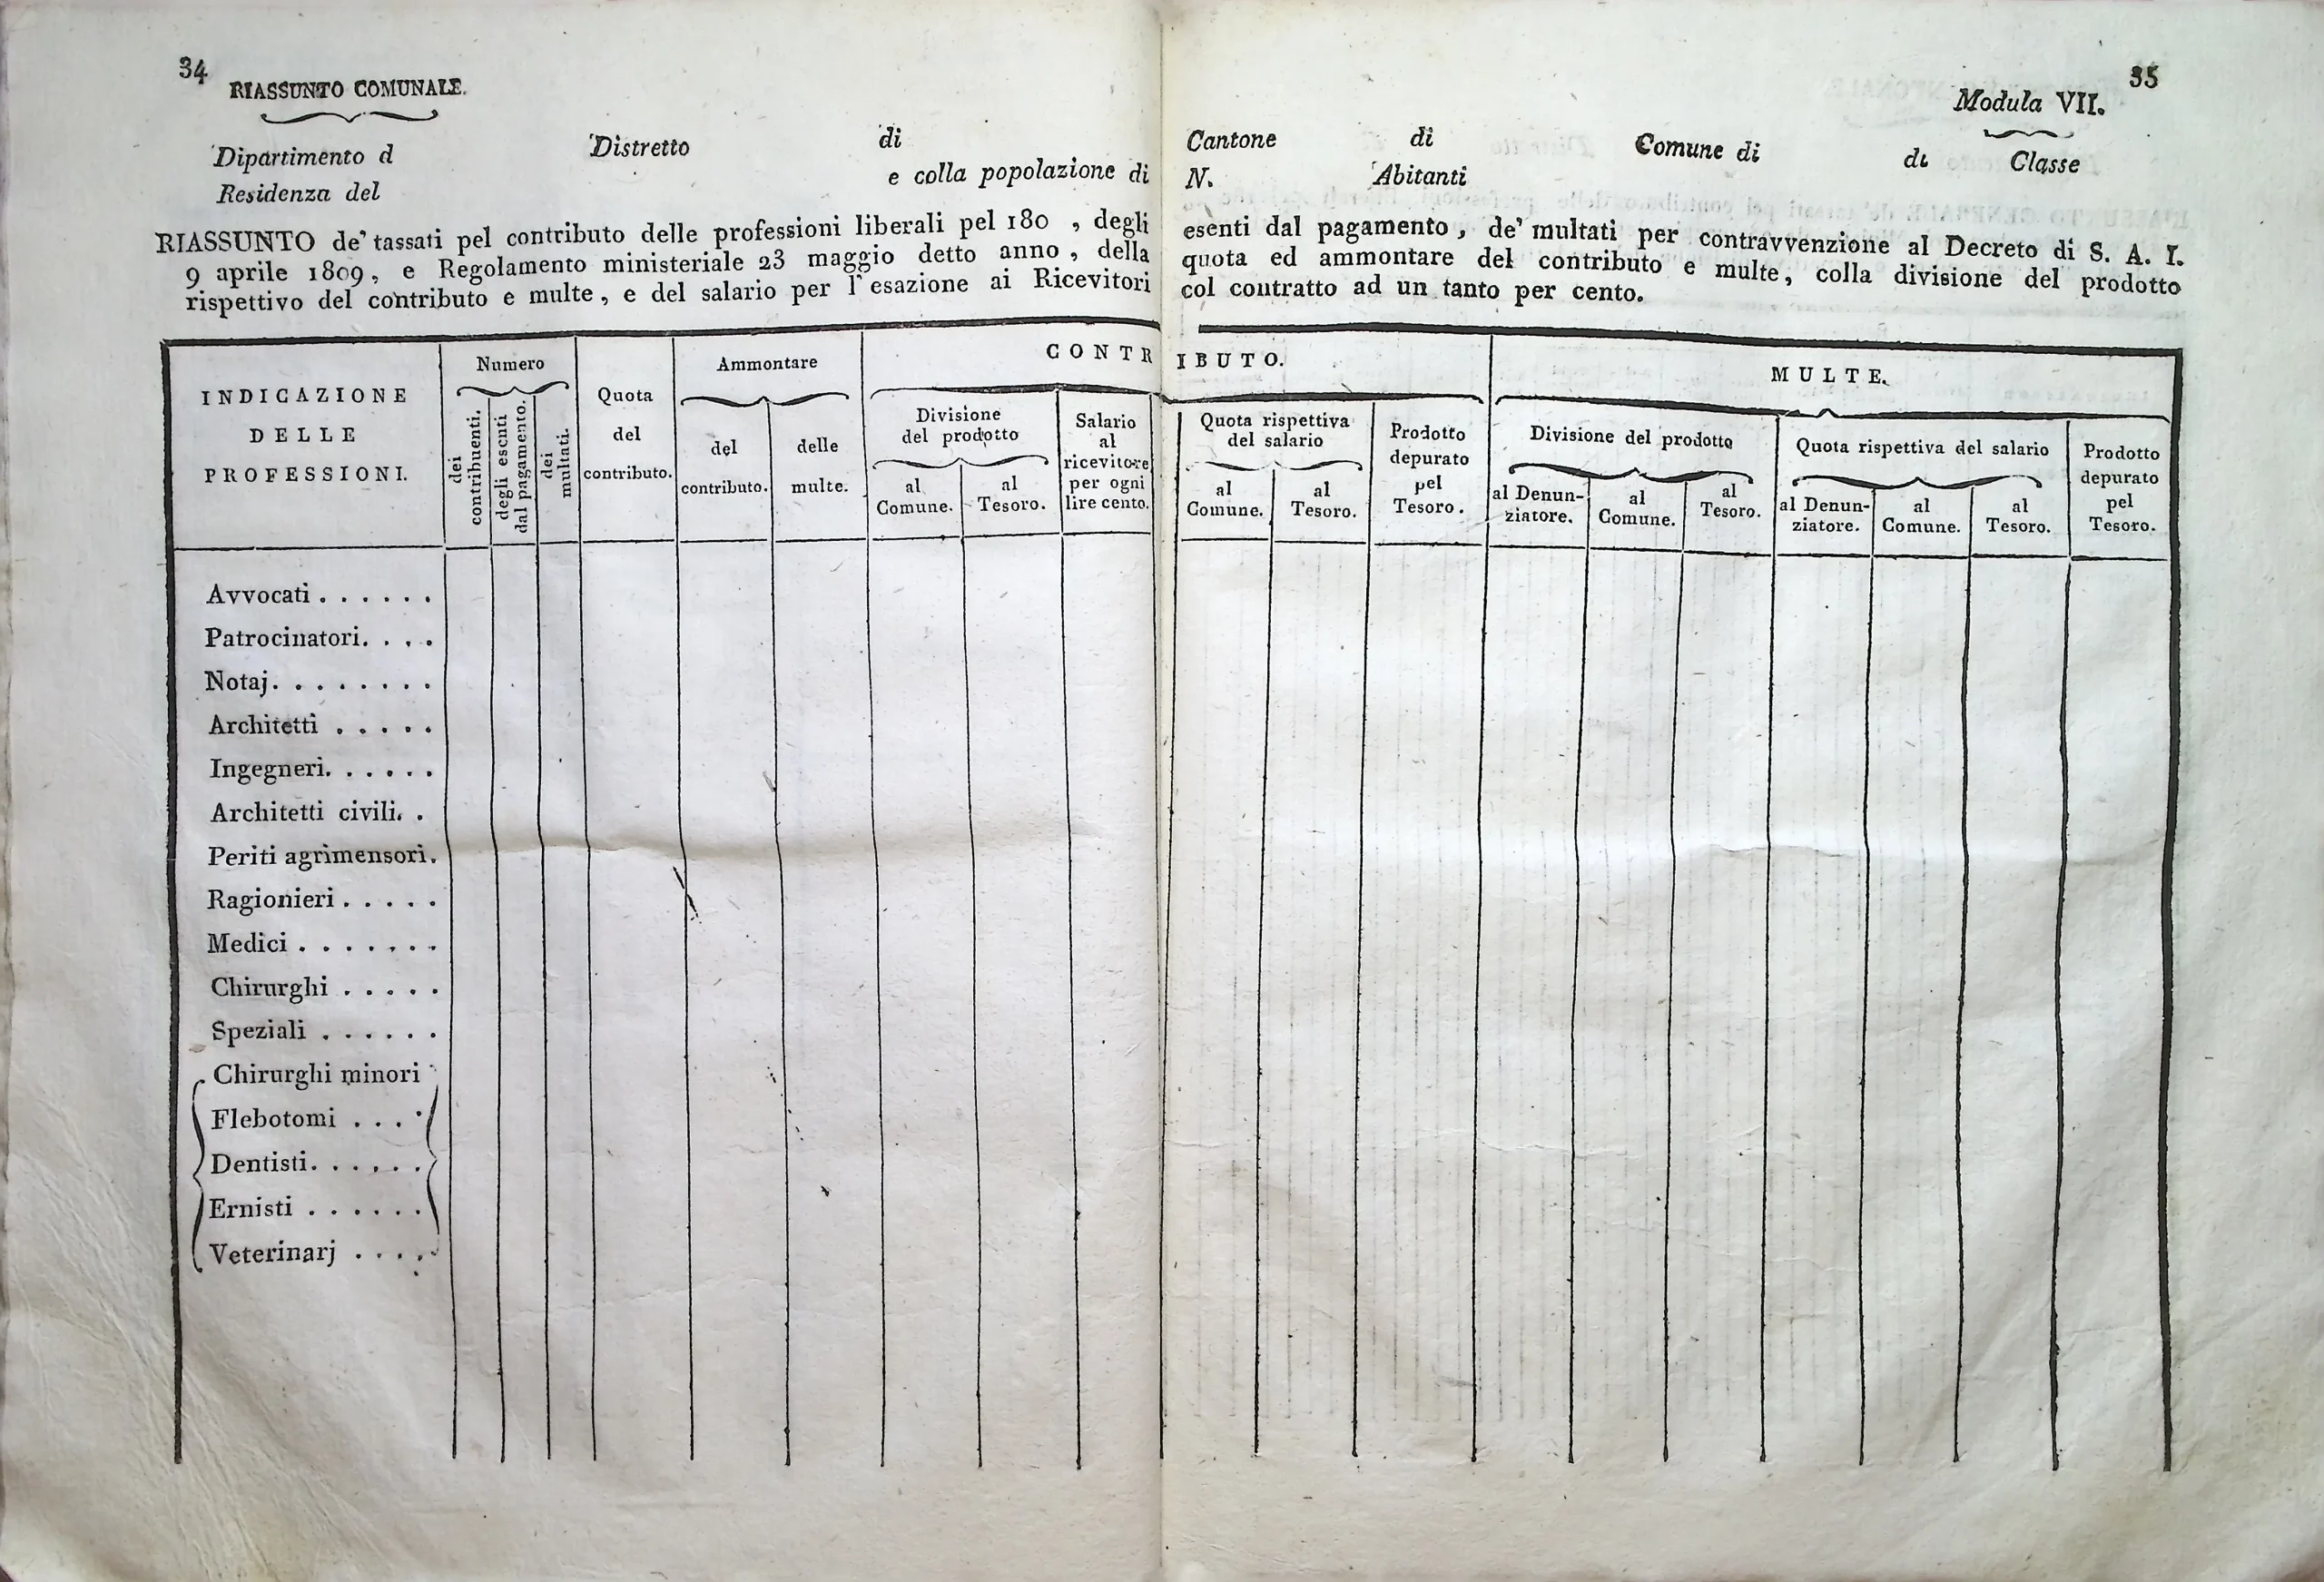 34
RIASSUNTO COMUNALE.
Dipartimento d Distretto di
Residenza del e colla popolazione di
RIASSUNTO de' tassati pel contributo delle professioni liberali pel 180 , degli
9 aprile 1809, e Regolamento ministeriale 23 maggio detto anno, della
rispettivo del contributo e multe, e del salario per l'esazione ai Ricevitori
INDICAZIONE
DELLE
PROFESSIONI.
Numero
dei
contribuenti.
degli esenti
dal pagamento.
dei
multati.
Quota
del
contributo.
Ammontare
del
contributo.
delle
multe.
CONTR
Divisione
del prodotto
al
Comune.
al
Tesoro.
Salario
al
ricevitore
per ogni
lire cento.
Avvocati . . . . . .
Patrocinatori. . . .
Notaj. . . . . . . .
Architetti . . . . .
Ingegneri. . . . . .
Architetti civili. .
Periti agrimensori.
Ragionieri . . . . .
Medici . . . . . . .
Chirurghi . . . . .
Speziali . . . . . .
Chirurghi minori
Flebotomi . . . .
Dentisti. . . . . .
Ernisti . . . . . .
Veterinarj . . . . .
35
Modula VII.
Cantone di Comune di di Classe
N. Abitanti
esenti dal pagamento, de' multati per contravvenzione al Decreto di S. A. I.
quota ed ammontare del contributo e multe, colla divisione del prodotto
col contratto ad un tanto per cento.
IBUTO.
Quota rispettiva
del salario
al
Comune.
al
Tesoro.
Prodotto
depurato
pel
Tesoro.
MULTE.
Divisione del prodotto
al Denun-
ziatore.
al
Comune.
al
Tesoro.
Quota rispettiva del salario
al Denun-
ziatore.
al
Comune.
al
Tesoro.
Prodotto
depurato
pel
Tesoro.